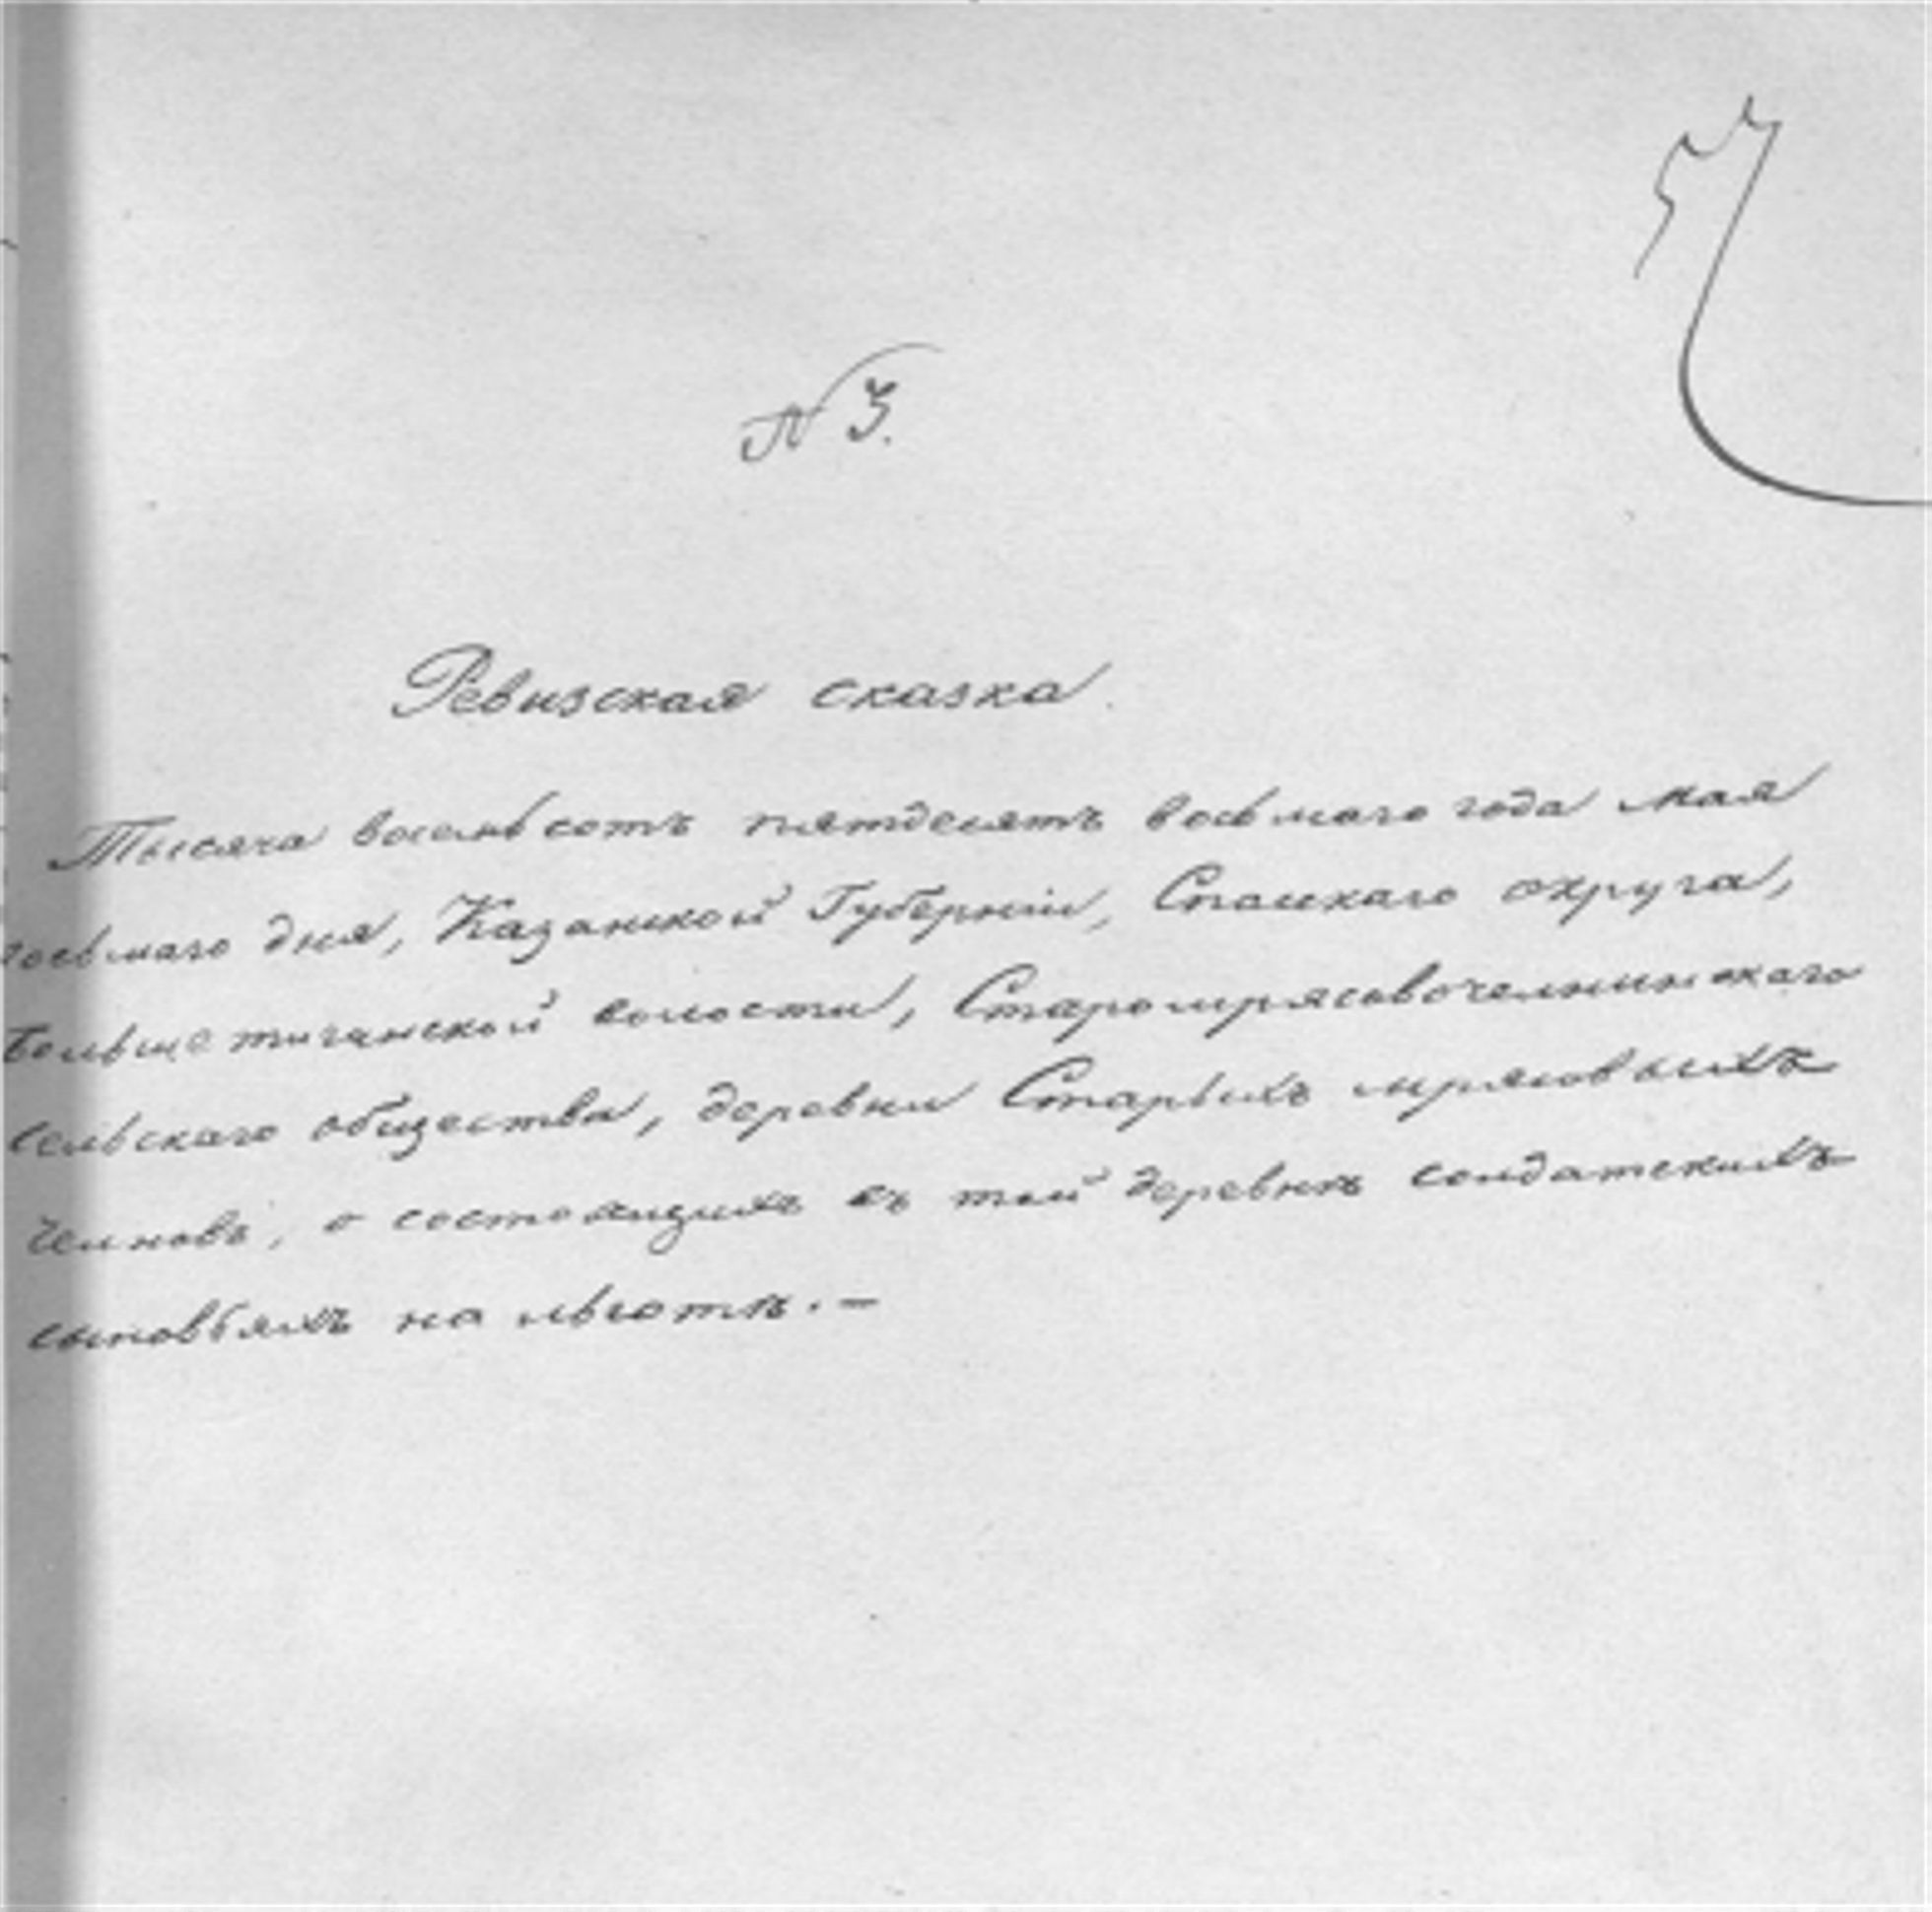 N 3.
Ревизская сказка.
Тысяча восемьсотъ пятдесятъ восьмаго года мая
восьмаго дня, Казанской Губерніи, Спаскаго округа,
Большетиганской волости, Старомрясовочелнинскаго
сельскаго общества, деревни Старыхъ мрясовыхъ
челновъ, о состоящихъ въ той деревнѣ солдатскихъ
сыновьяхъ на льготѣ. –